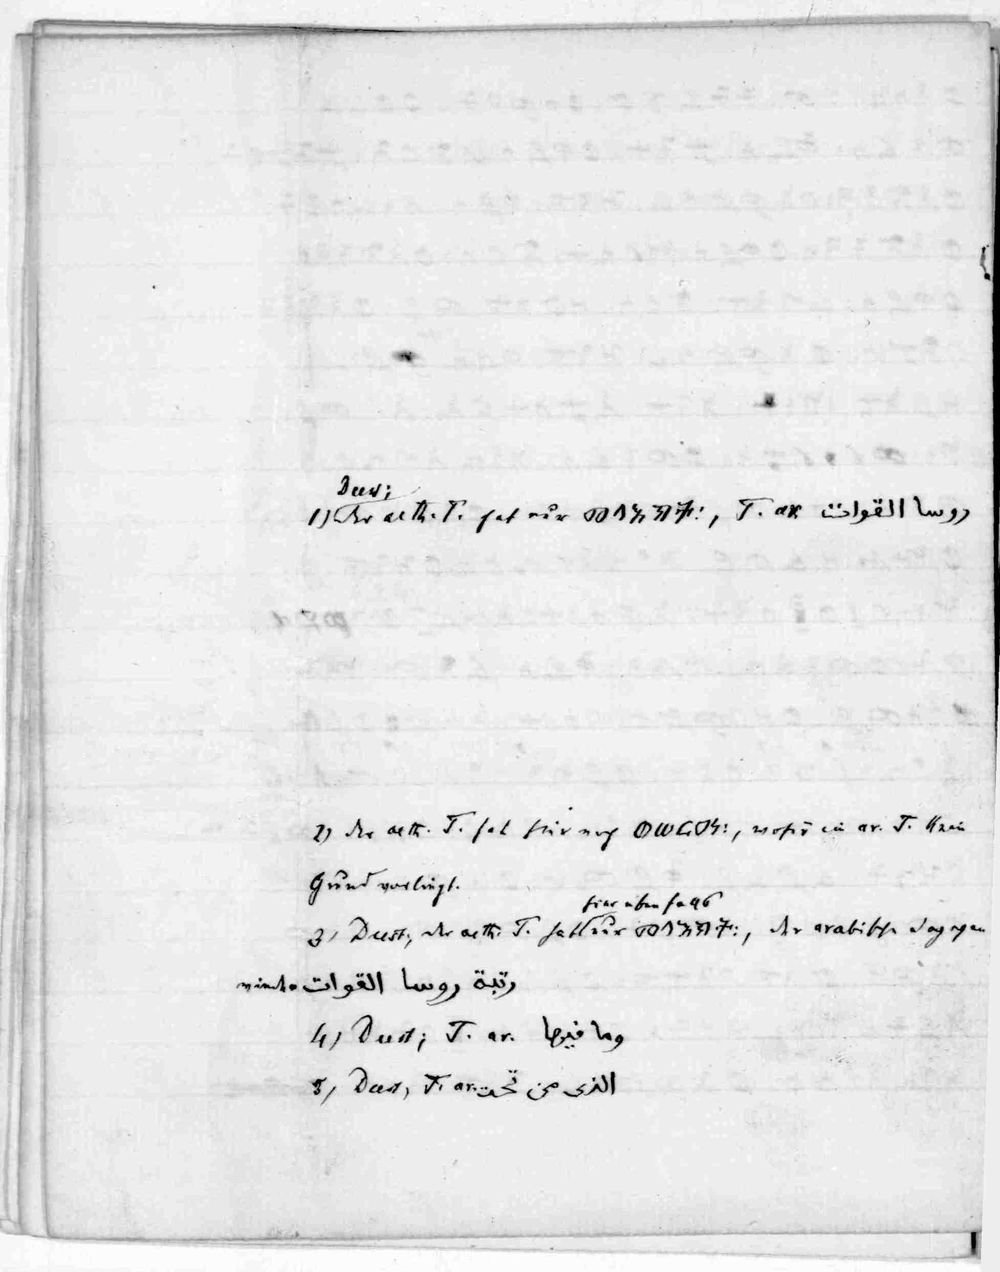 Deest;
1) Der aeth. T. hat nur መላእክት:, T. ar روسا القوات
2) der aeth. T. hat hier noch ወሠርዐ:, wofür im ar. T. kein
Grund vorliegt.
hier ebenfalls
3) Deest; der aeth. T. hat nur መላእክት:, der arabische dagegen
رتبة روسا القوات
4) Deest; T. ar. وما فيها
5) Deest, T. ar. الذى من تحت